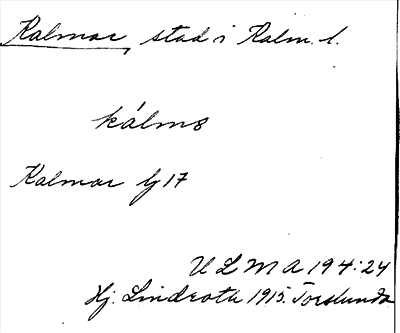 Kalmar, stad i Kalm. l.
kálmə
Kalmar lj 17
ULMA 194:24
Hj. Lindroth 1915. Torslunda